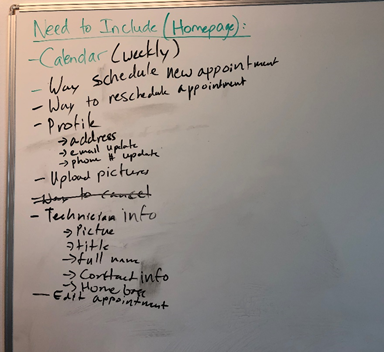 Need to Include (Homepage):
- Calendar (weekly)
- Way schedule new appointment
- Way to reschedule appointment
- Profile
→ address
→ email update
→ phone # update
- Upload pictures
- Way to cancel
- Technician info
→ Pictue
→ title
→ full name
→ Conttact info
→ Home base
- Edit appointment